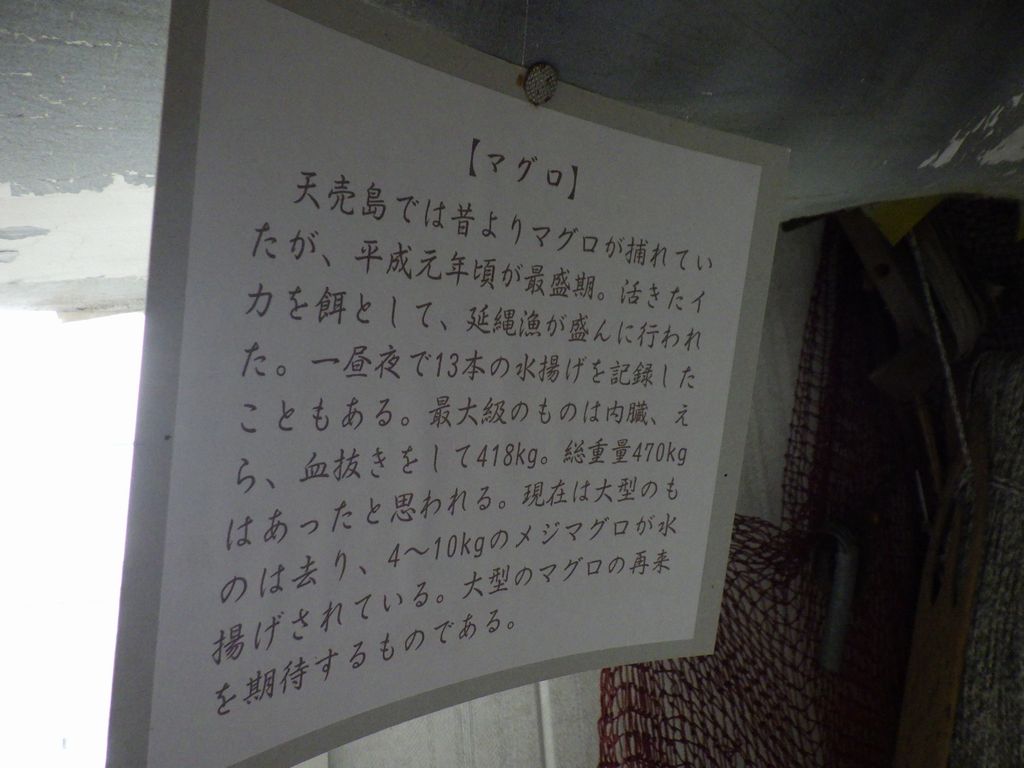 【マグロ】
天売島では昔よりマグロが捕れてい
たが、平成元年頃が最盛期。活きたイ
カを餌として、延縄漁が盛んに行われ
た。一昼夜で13本の水揚げを記録した
こともある。最大級のものは内臓、え
ら、血抜きをして418kg。総重量470kg
はあったと思われる。現在は大型のも
のは去り、4～10kgのメジマグロが水
揚げされている。大型のマグロの再来
を期待するものである。